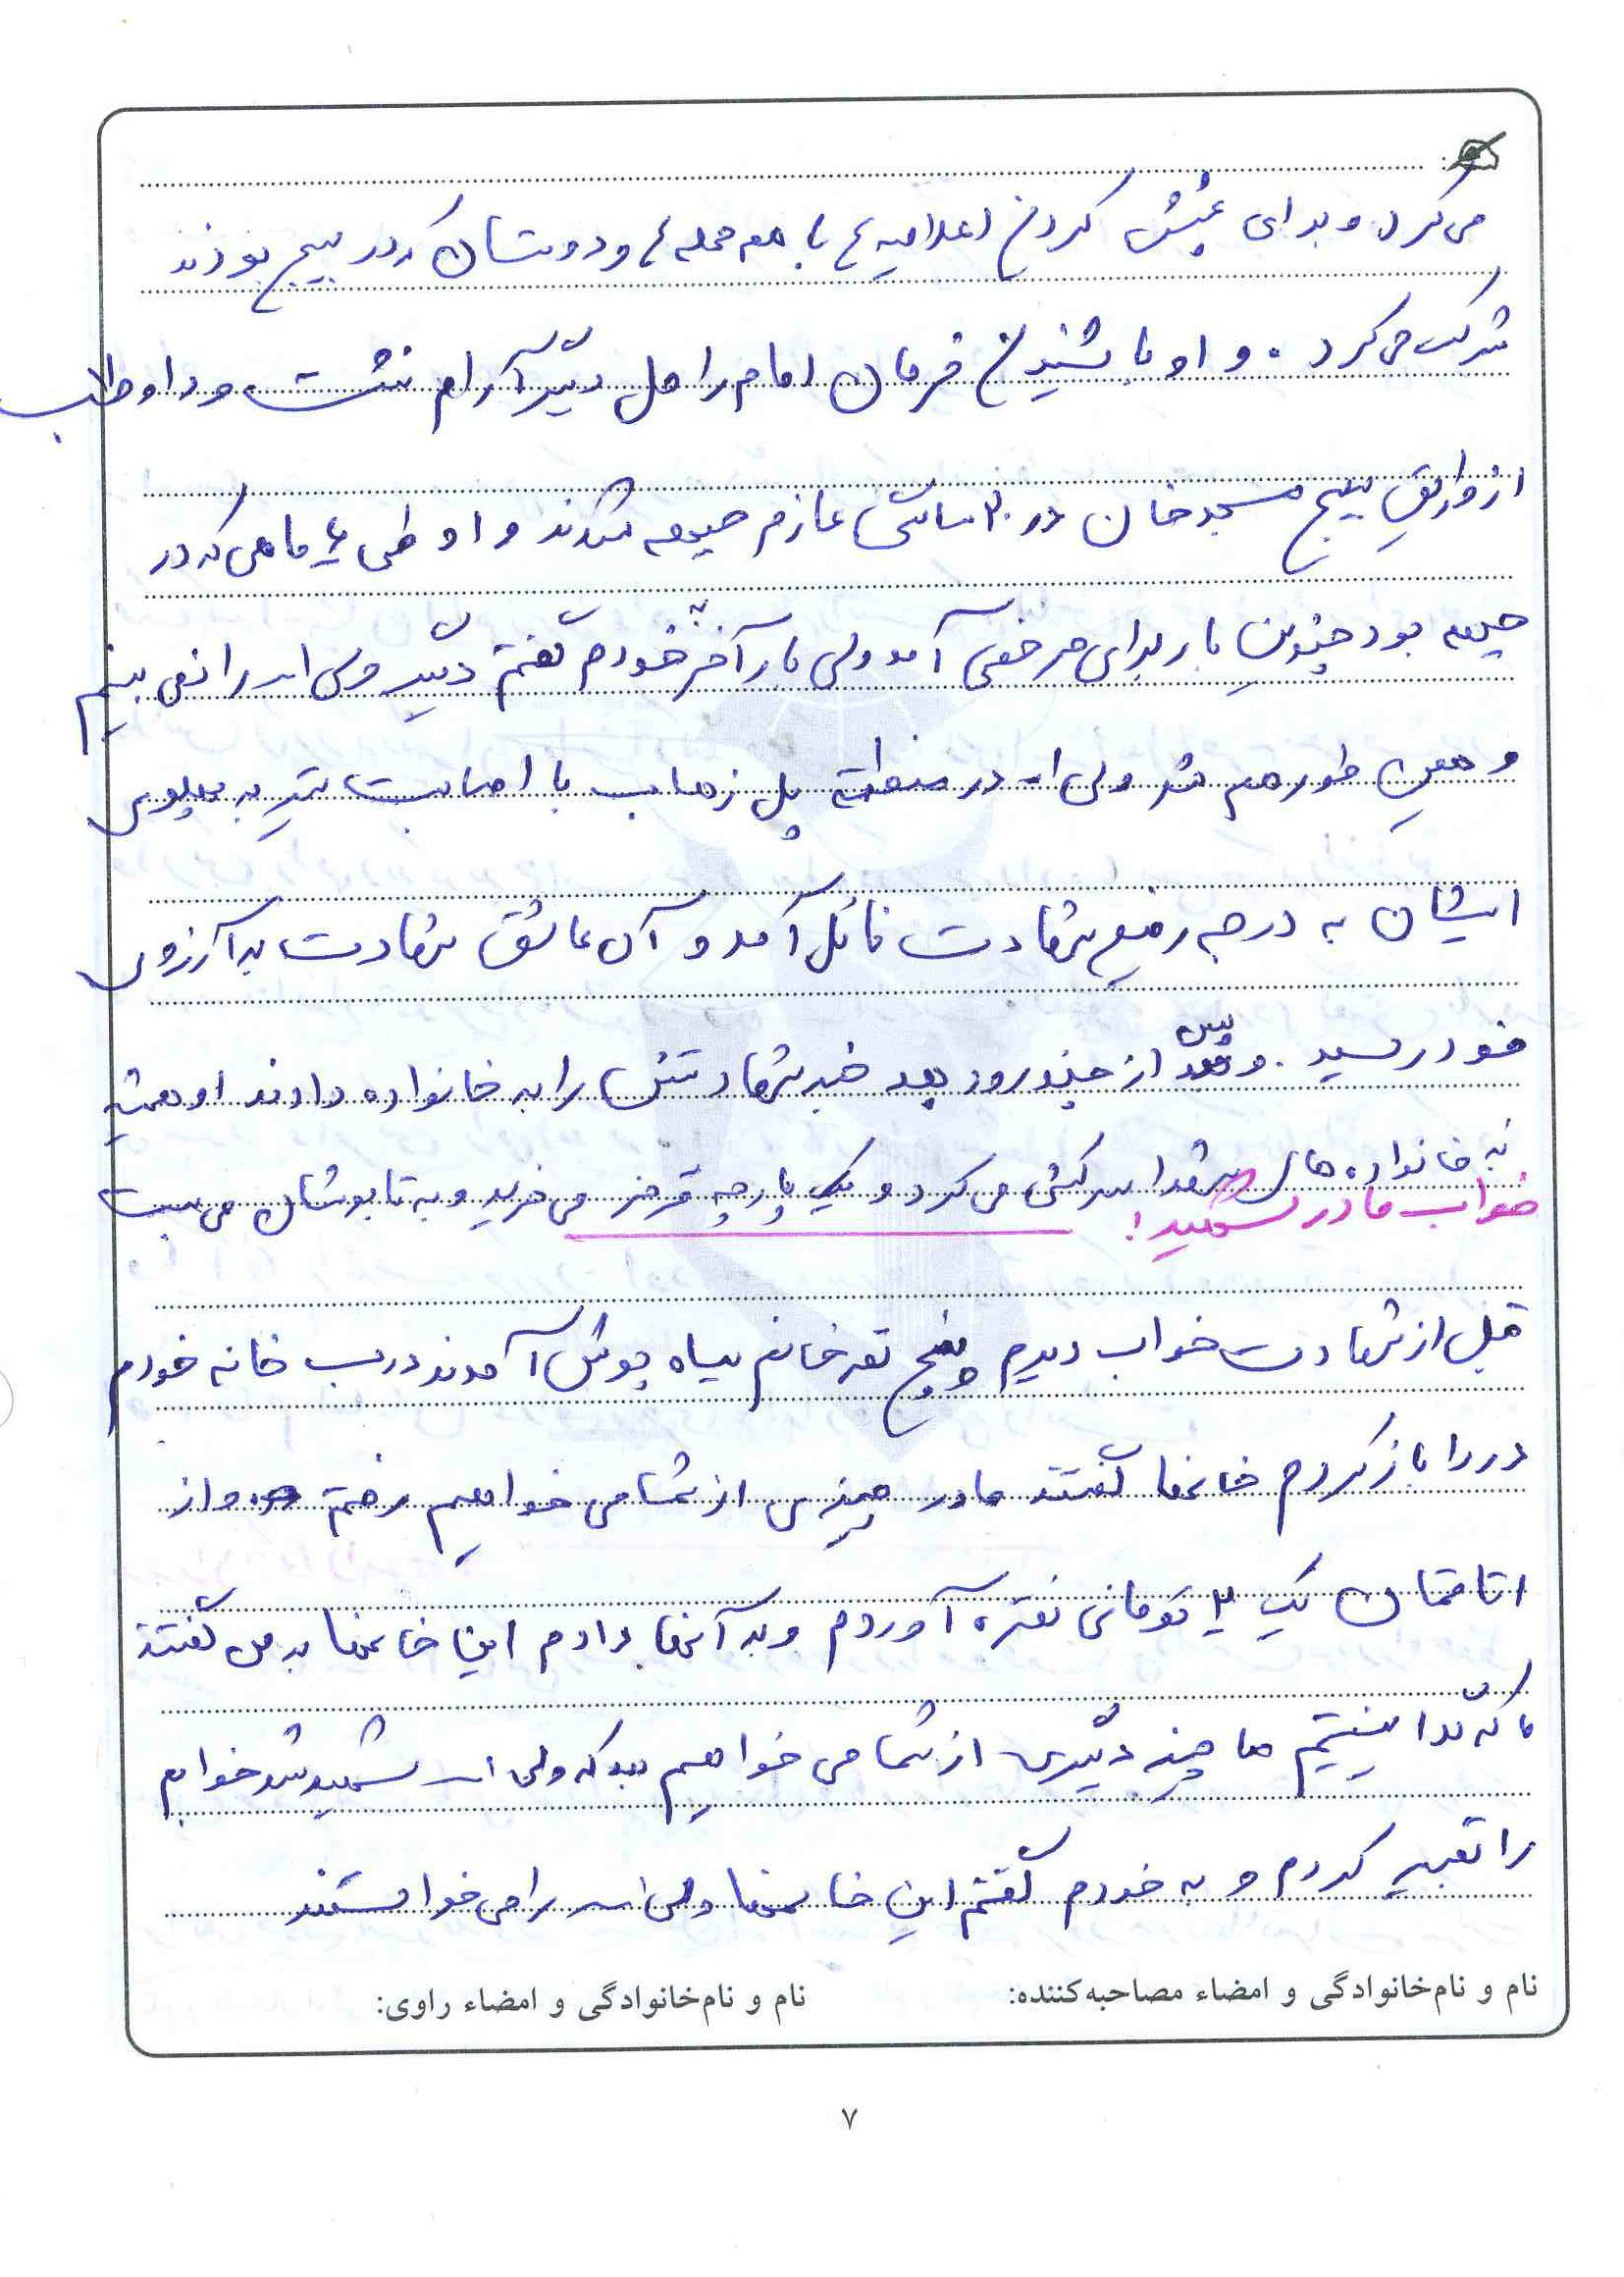 می کرد. و برای پخش کردن اعلامیه ها با بچه محله ها و دوستان که در بسیج بودند
شرکت می کرد. و او با شنیدن فرمان امام راحل دیگر آرام ننشست و داوطلب
از طریق بسیج مسجد خان در ۲۰ سالگی عازم جبهه شدند و او طی ماهی که در
جبهه بود چندین بار برای مرخصی آمد ولی بار آخر خودم گفتم دیگر ولی اله را نمی بینم
و همین طور هم شد ولی اله در منطقه پل ذهاب با اصابت تیر به پهلوی
ایشان به درجه رفیع شهادت نائل آمد و آن عاشق شهادت به آرزوی
خود رسید. و پس از چند روز بعد خبر شهادتش را به خانواده دادند او همیشه
به خانواده های شهدا سرکشی می کرد و یک پارچه قرمز می خرید و به تابوتشان می بست
خواب مادر شهید:
قبل از شهادت خواب دیدم پنج نفر خانم سیاه پوش آمدند درب خانه خودم
در را باز کردم خانمها گفتند مادر چیزی از شما می خواهیم رفتم و از
اتاقمان یک ۲ تومانی نقره آوردم و به آنها دادم این خانمها به من گفتند
ما گدا نیستیم ما چیز دیگری از شما می خواهیم بعد که ولی اله شهید شد خوابم
را تعبیر کردم و به خودم گفتم این خانمها ولی اله را می خواستند
نام و نام‌خانوادگی و امضاء مصاحبه‌کننده:
نام و نام‌خانوادگی و امضاء راوی:
۷